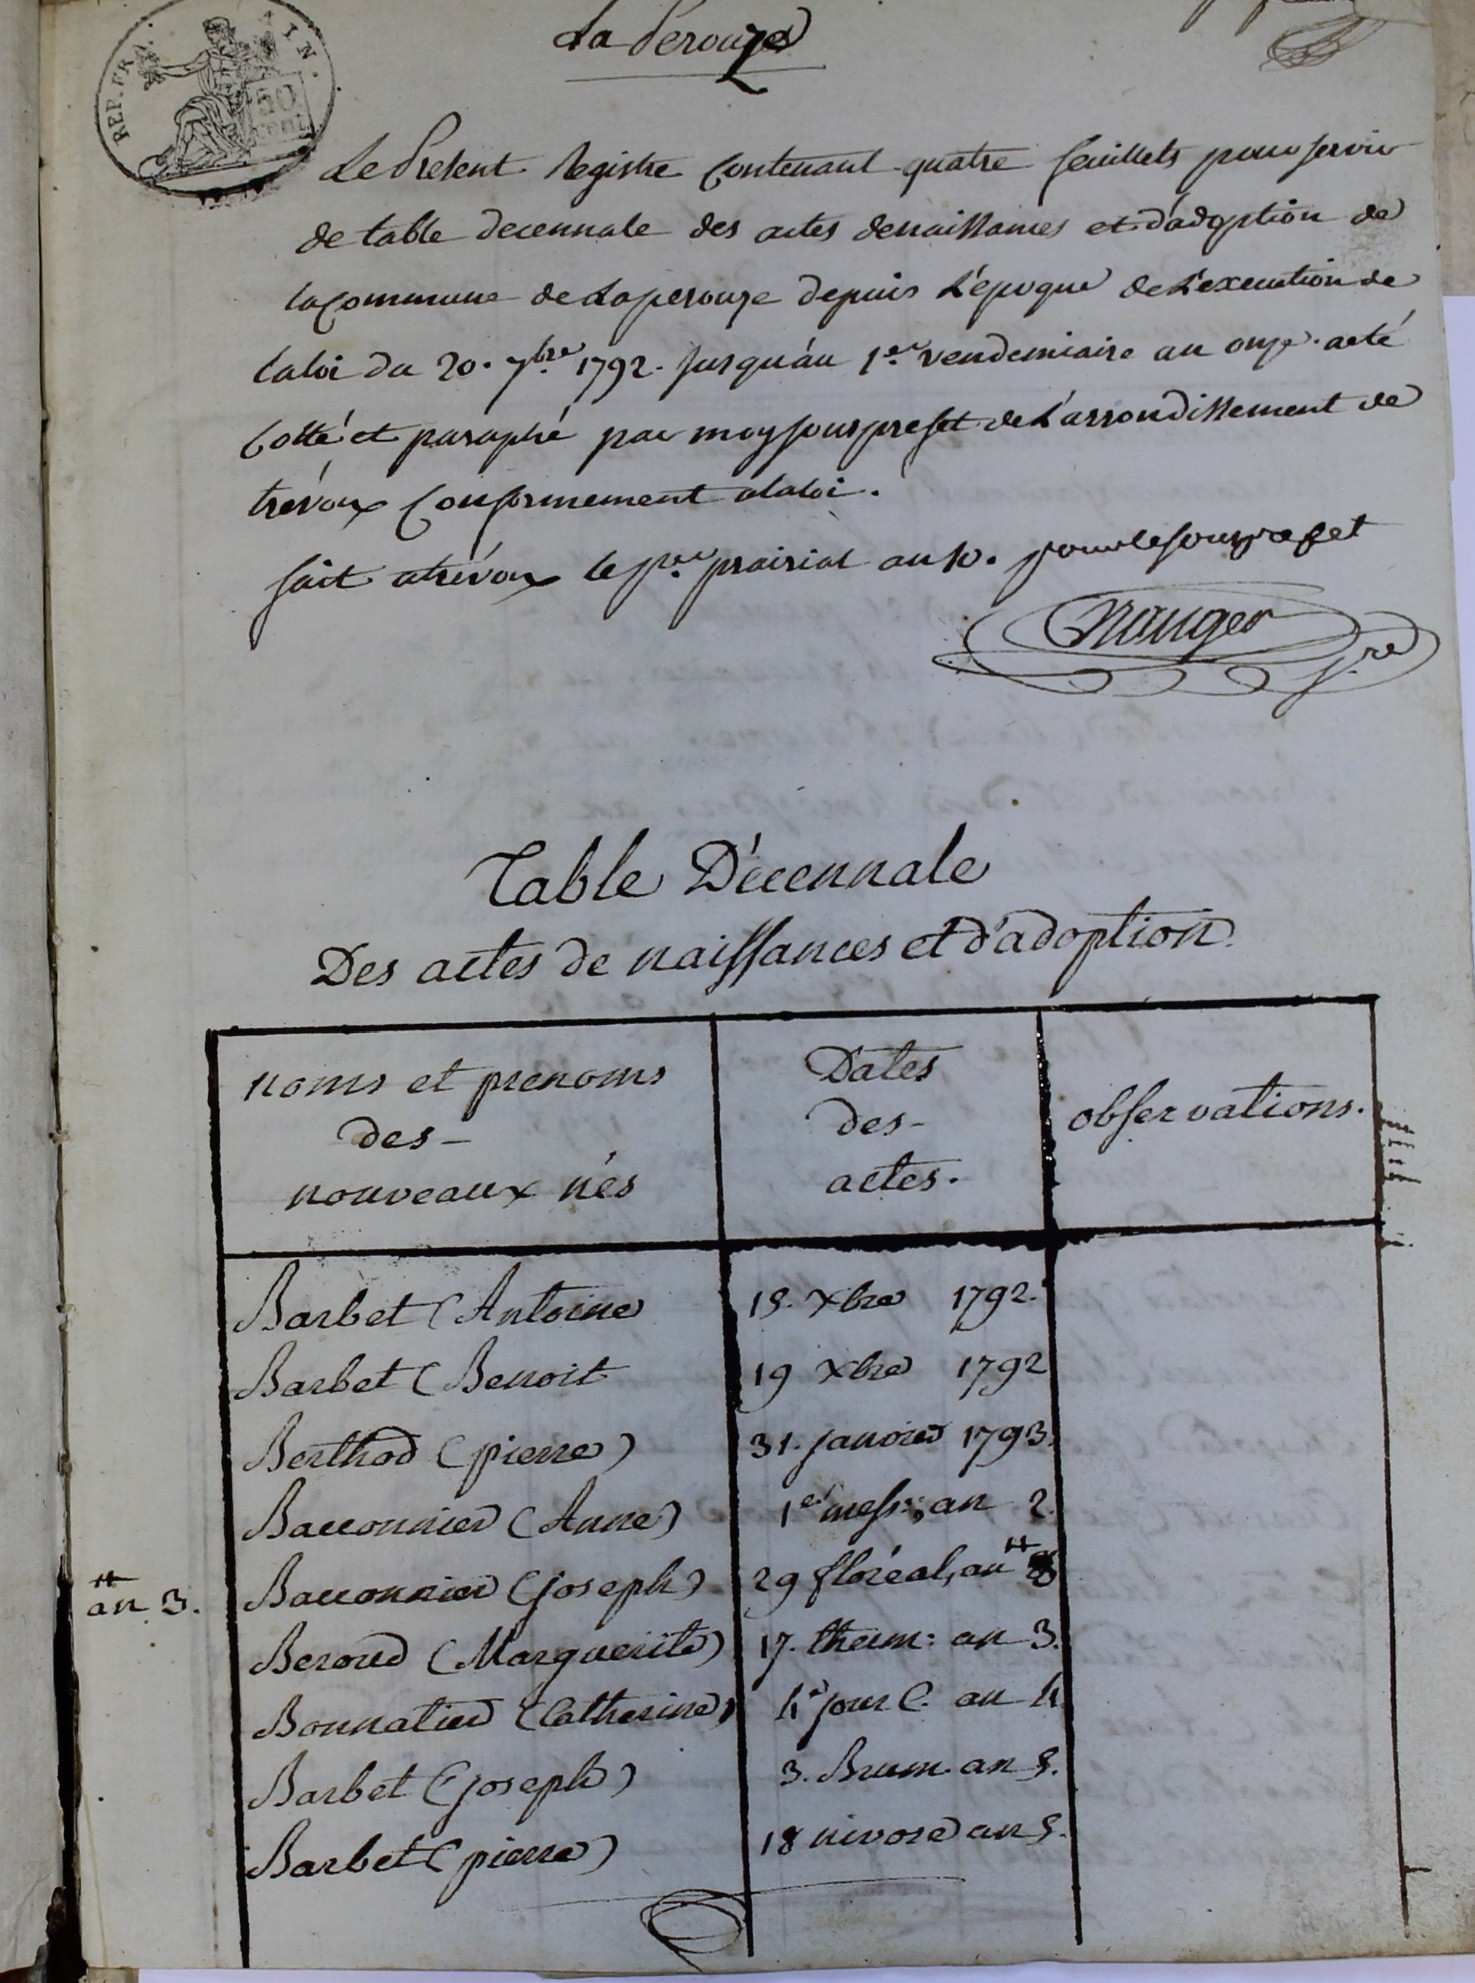 REP. FRA. 
50 cent
La Perouze
Le Present Registre Contenant quatre feuillets pour servir
de table decennale des actes denaissances et d'adoption de
la Commune de Laperouze depuis L'époque de L'execution de
la loi du 20. 7bre 1792. jusqu'au 1.er vendemiaire an onze. a eté
Cotté et paraphé par moy souspreset de L'arrondissement de
trévoux Conformement a la loi.
fait a trévoux le 1.er prairial an 10. pour le souspreset
Table Décennale
Des actes de naissances et d'adoption.
noms et prenoms
des-
nouveaux nés
Dates
des-
actes.
observations.
Barbet (Antoine 19. Xbre 1792.
Barbet (Benoit 19 Xbre 1792
Berthod (pierre) 31. janvier 1793.
Bacconnier (Anne) 1er mess.; an 2.
an 3. Bacconnier (joseph) 29 floréal, an
Beroud (Marguerite) 17. therm: an 3.
Bonnatier (Catherine) 4e jour C. an 4.
Barbet (joseph) 3. Brum. an 5.
Barbet (pierre) 18 nivose an 5.